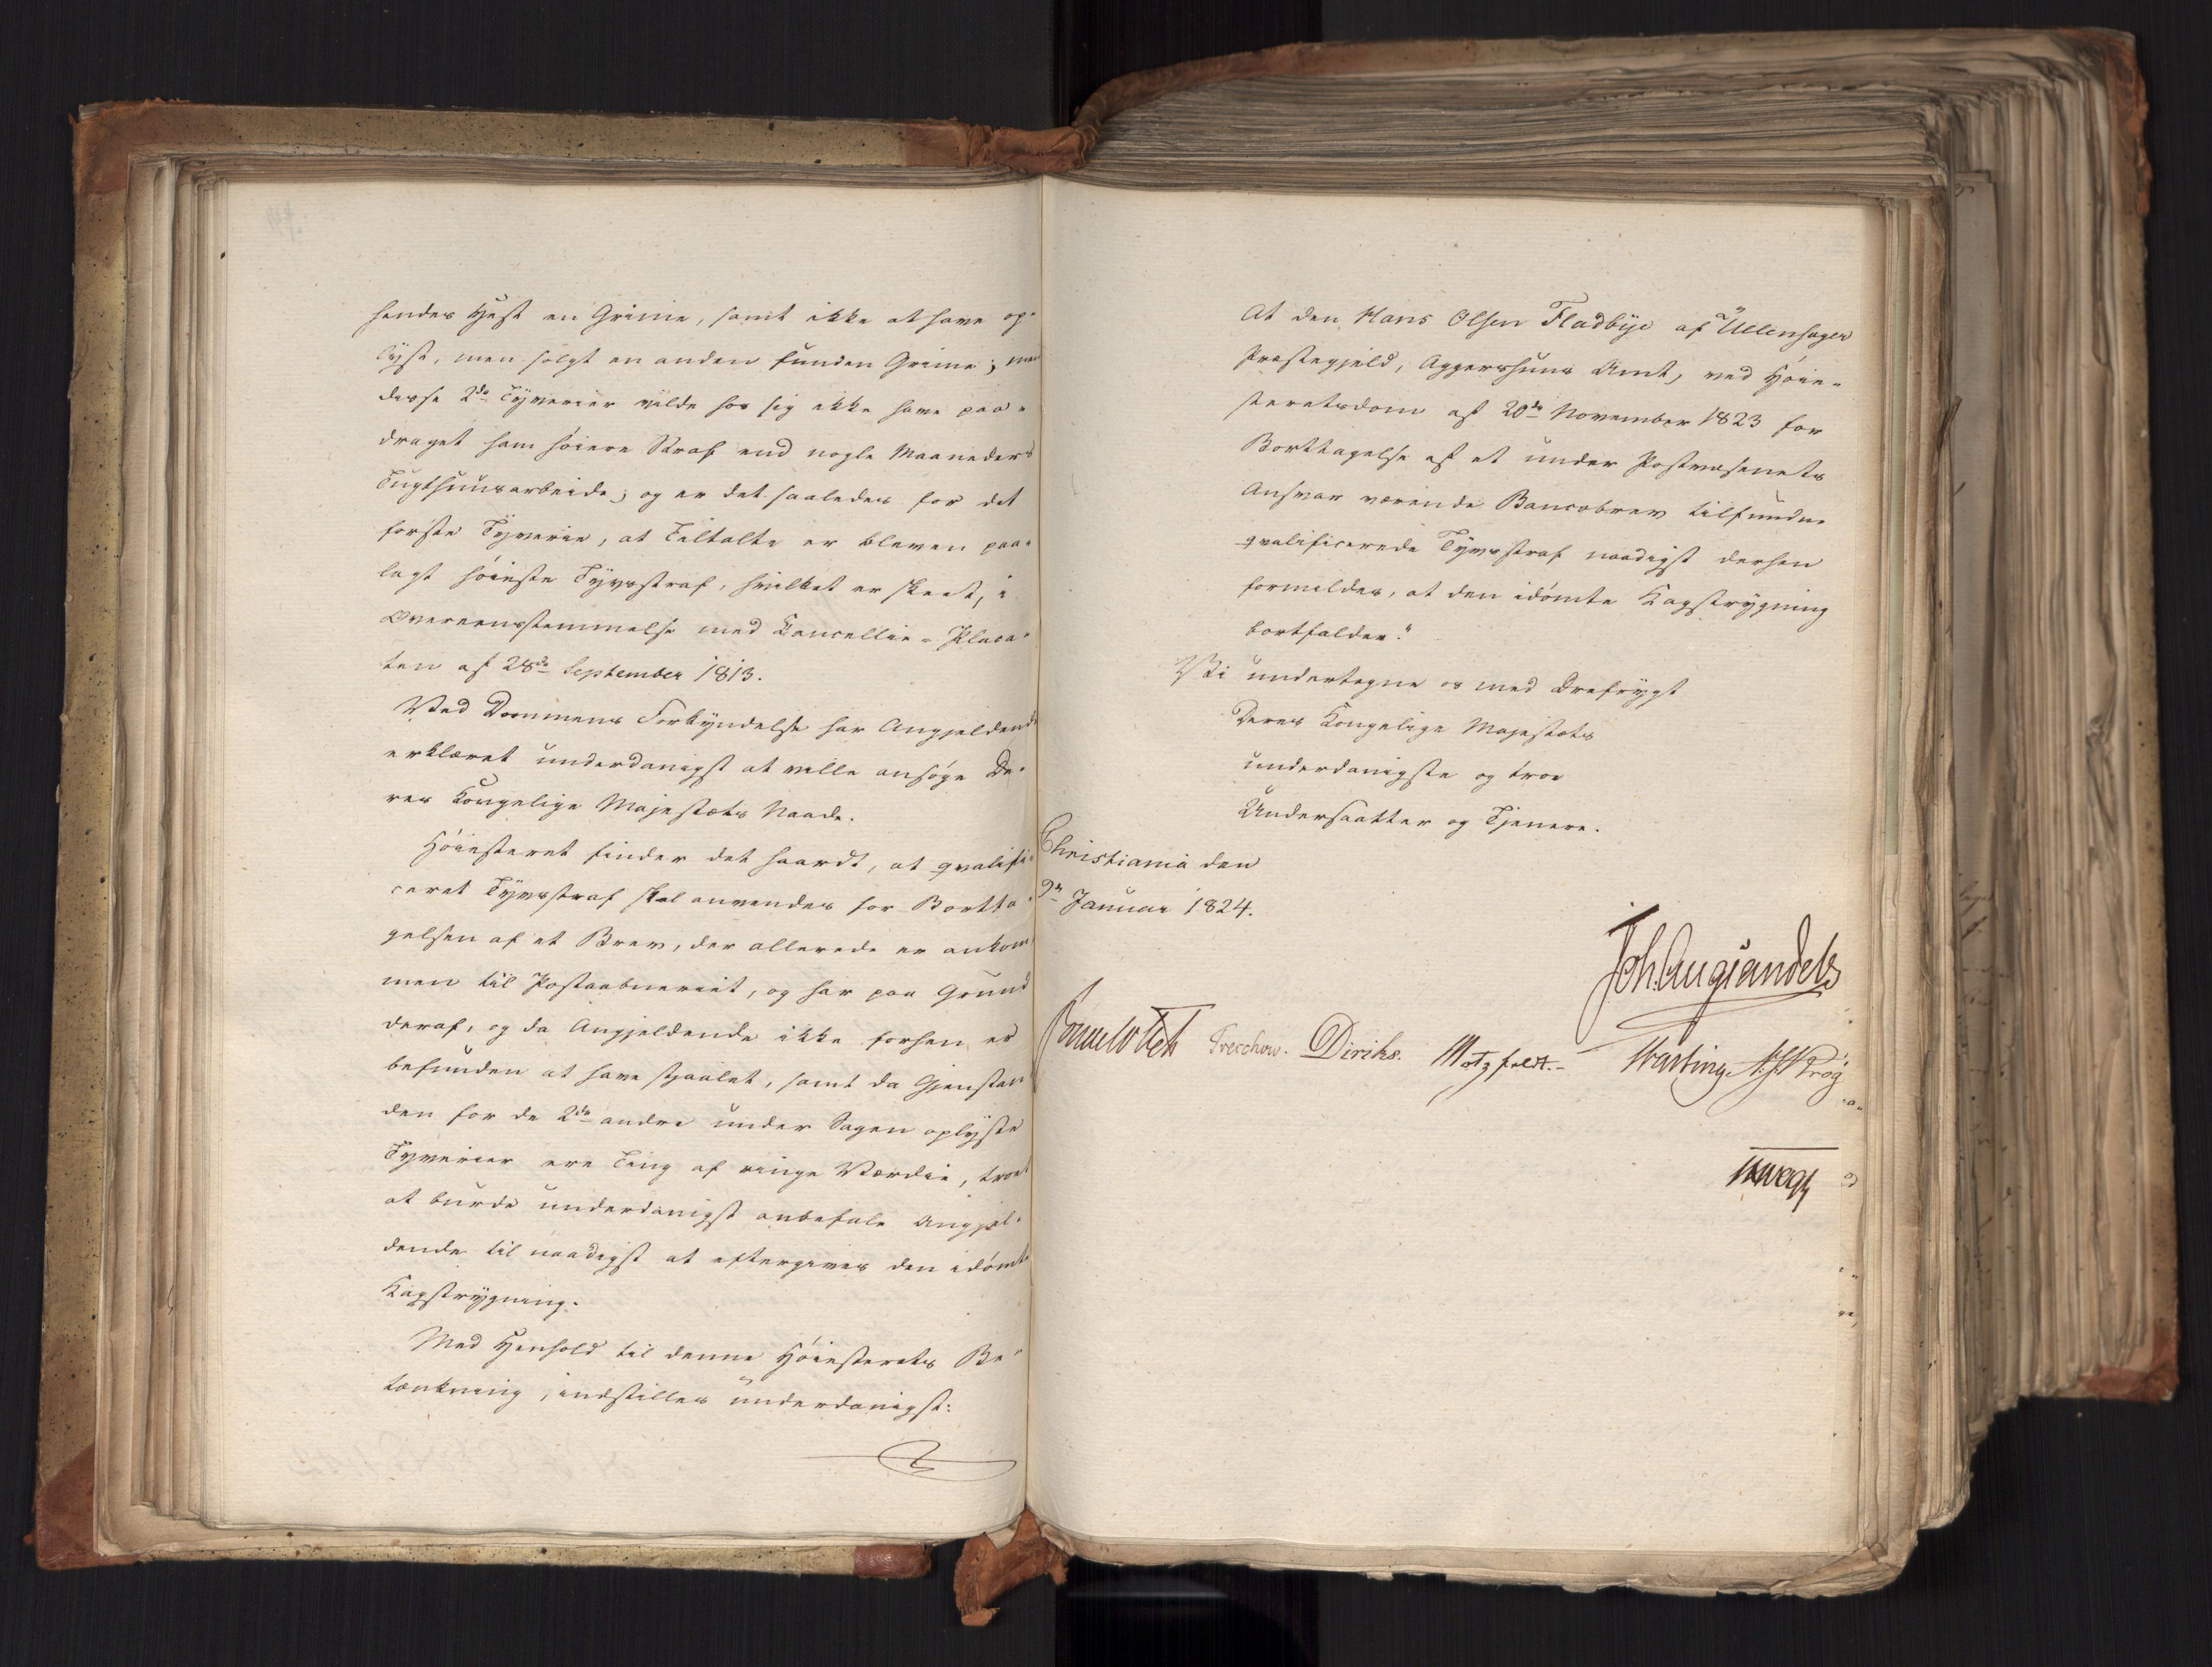 hendes Hest en Grime, samt ikke at have op-
lyst, men solgt en anden funden Grime; men
disse 2de Tyverier vilde hos sig ikke have paa-
draget ham høiere Straf end nogle Maaneders
Tugthuusarbeide; og er det saaledes for det
første Tyverie, at Tiltalte er bleven paa-
lagt høieste Tyvsstraf, hvilket er skeet, i
Overeensstemmelse med Cancellie-Placa-
ten af 28de September 1813.
Ved Dommens Forkyndelse har Angjeldende
erklæret underdanigst at ville ansøge De-
res Kongelige Majestæts Naade.
Høiesteret finder det haardt, at qvalifi-
ceret Tyvsstraf skal anvendes for Bortta-
gelsen af et Brev, der allerede er ankom-
men til Postaabneriet, og har paa Grund
deraf, og da Angjeldende ikke forhen er
befunden at have stjaalet, samt da Gjenstan-
den for de 2de andre under Sagen oplyste
Tyverier ere Ting af ringe Værdie, troet
at burde underdanigst anbefale Angjel-
dende til naadigst at eftergives den idømte
Kagstrygning.
Med Henhold til denne Høiesterets Be-
tænkning, indstilles underdanigst:
At den Hans Olsen Fladbye af Ullensager
Præstegjeld, Aggershuus Amt, ved Høie-
steretsdom af 20de November 1823 for
Borttagelse af et under Postvæsenets
Ansvar værende Bancobrev tilfundne
qvalificerede Tyvsstraf naadigst derhen
formildes, at den idømte Kagstrygning
bortfalder."
Vi undertegne os med Ærefrygt
Deres Kongelige Majestæts
underdanigste og troe
Undersaatter og Tjenere.
Christiania den
9de Januar 1824.
Joh. Aug. Sandels
Sommerfeldt Treschow. Diriks. Motzfeldt. Hasting J. H. Krog